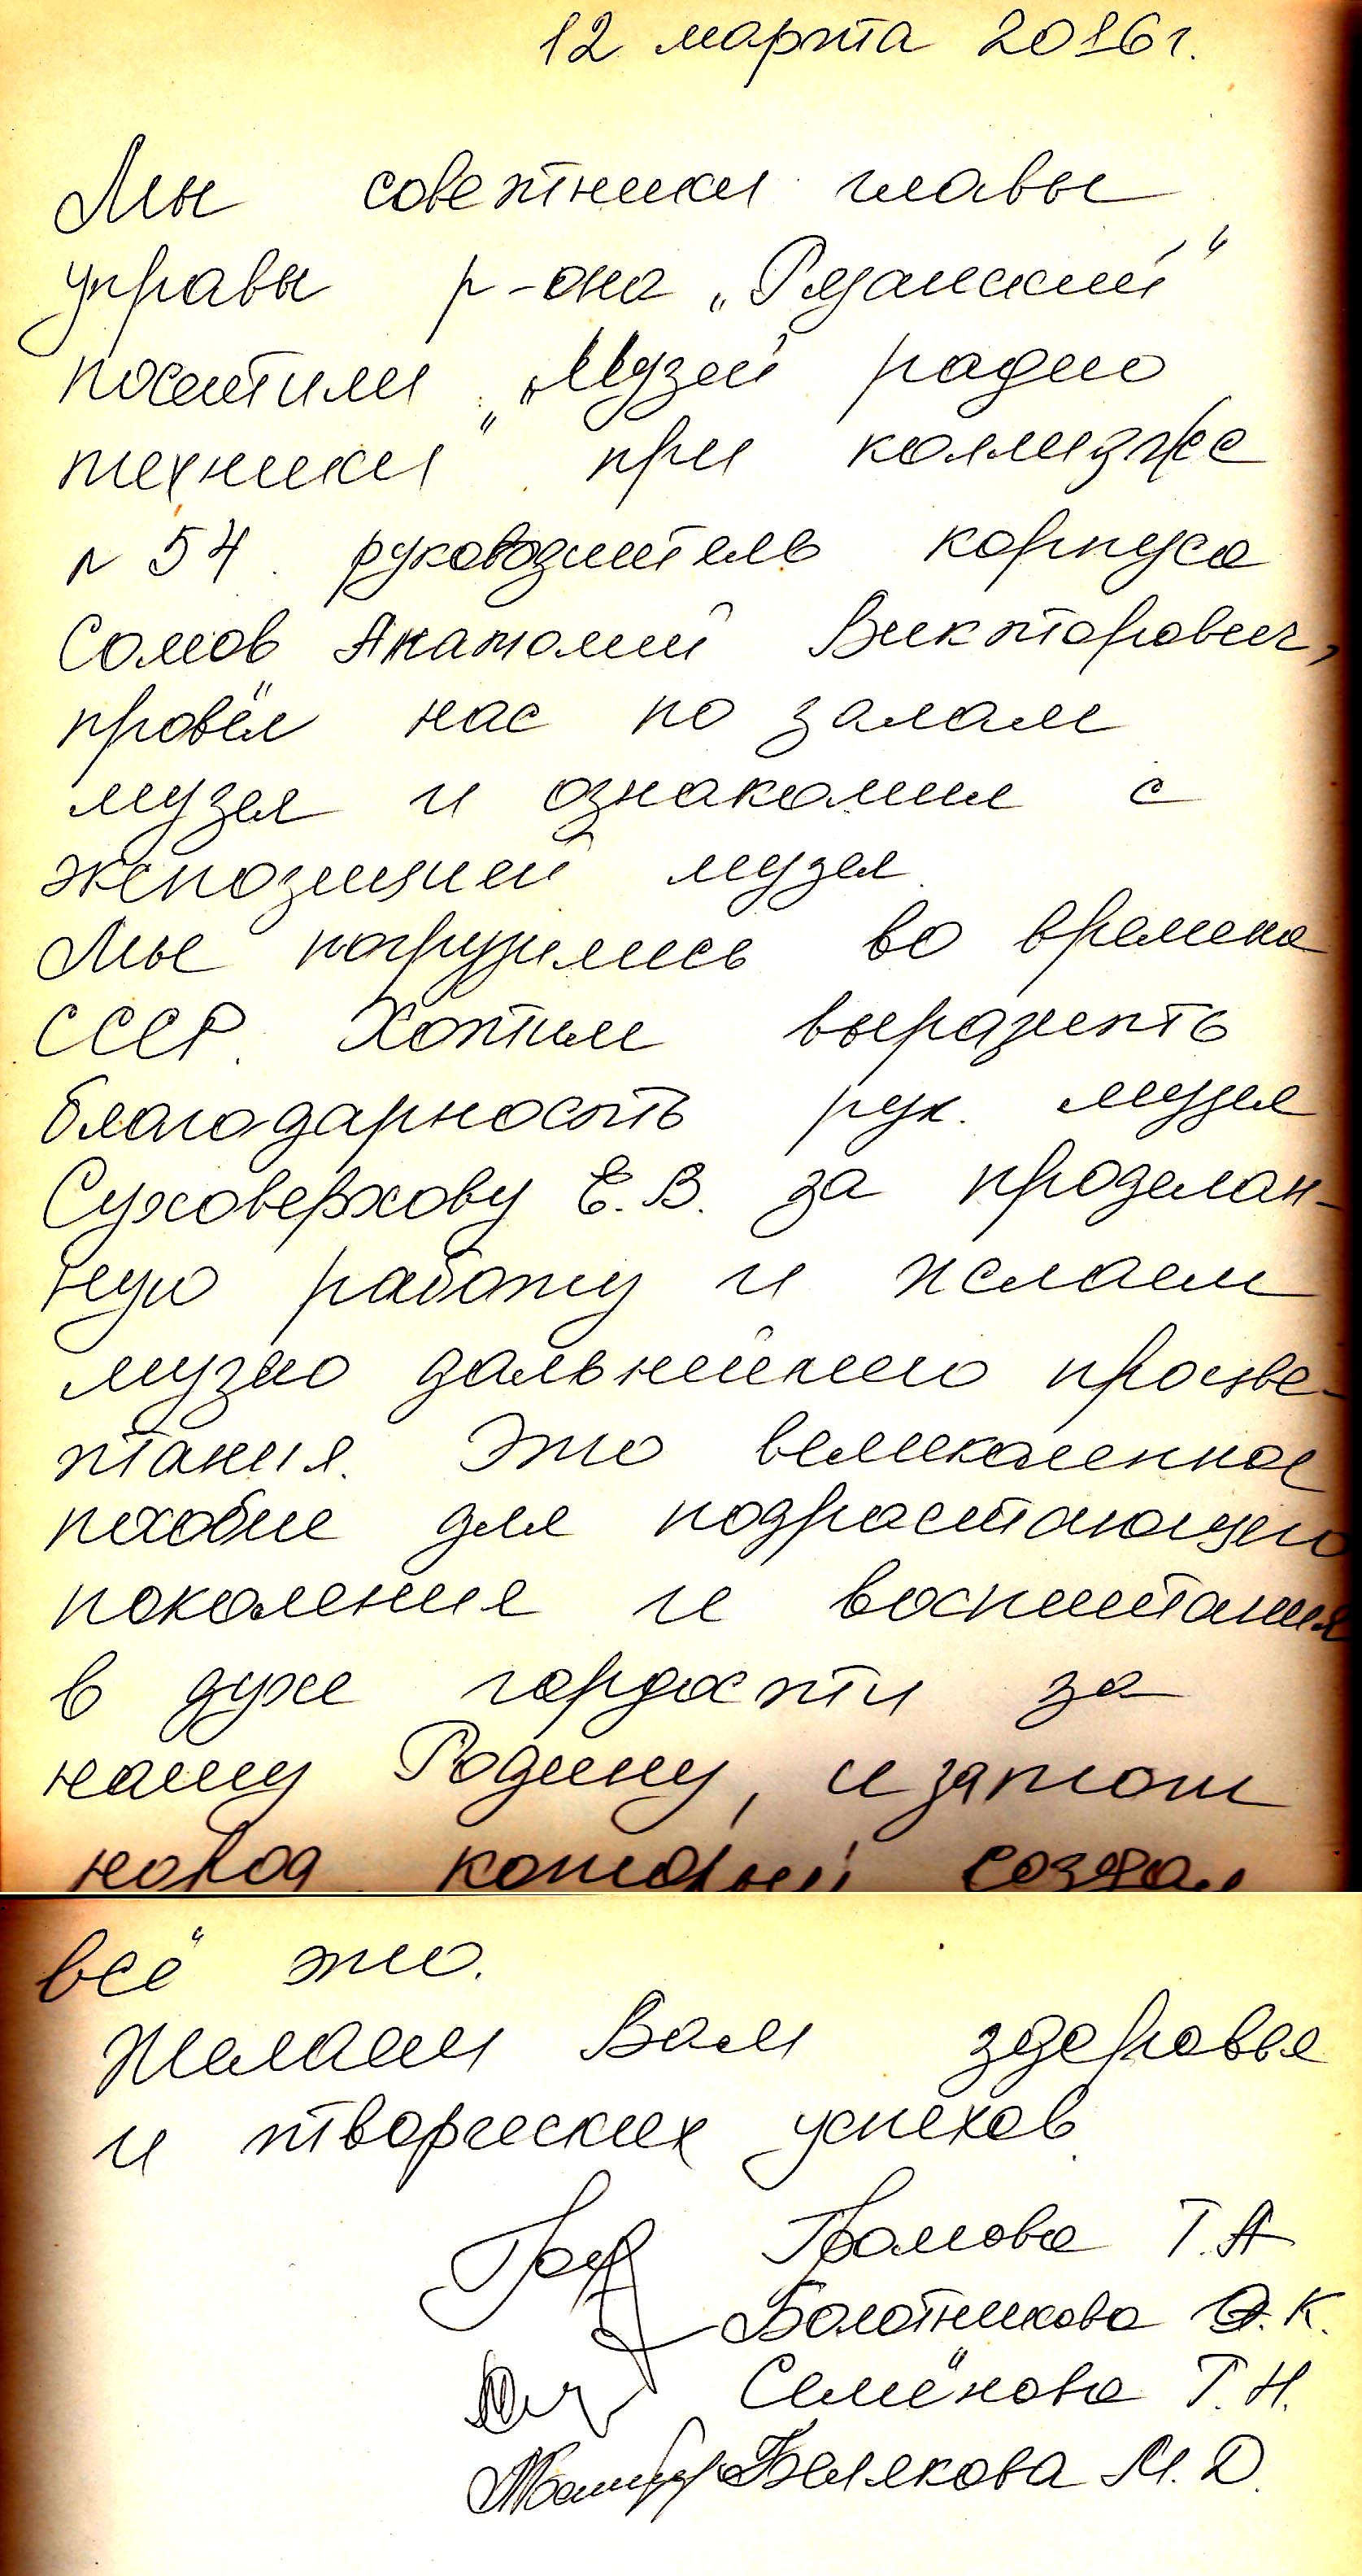 12 марта 2016г.
Мы советники главы
управы р-она „Рязанский"
посетили „Музей радио
техники" при коллэдже
N 54. руководитель корпуса
Сомов Анатолий Викторович,
провёл нас по залам
музея и ознакомил с
экспозицией музея.
Мы погрузились во времена
СССР. Хотим выразить
благодарность рук. музея
Суховерхову Е.В. за проделан-
ную работу и желаем
музею дальнейшего процве-
тания. Это великоленное
пособие для подрастающего
поколения и воспитания
в духе гордости за
нашу Родину, и за тот
народ который создал
всё это.
Желаем Вам здоровья
и творческих успехов.
Громова Т.А
Болотникова Э.К.
Семёнова Т.Н.
Белякова М.Д.